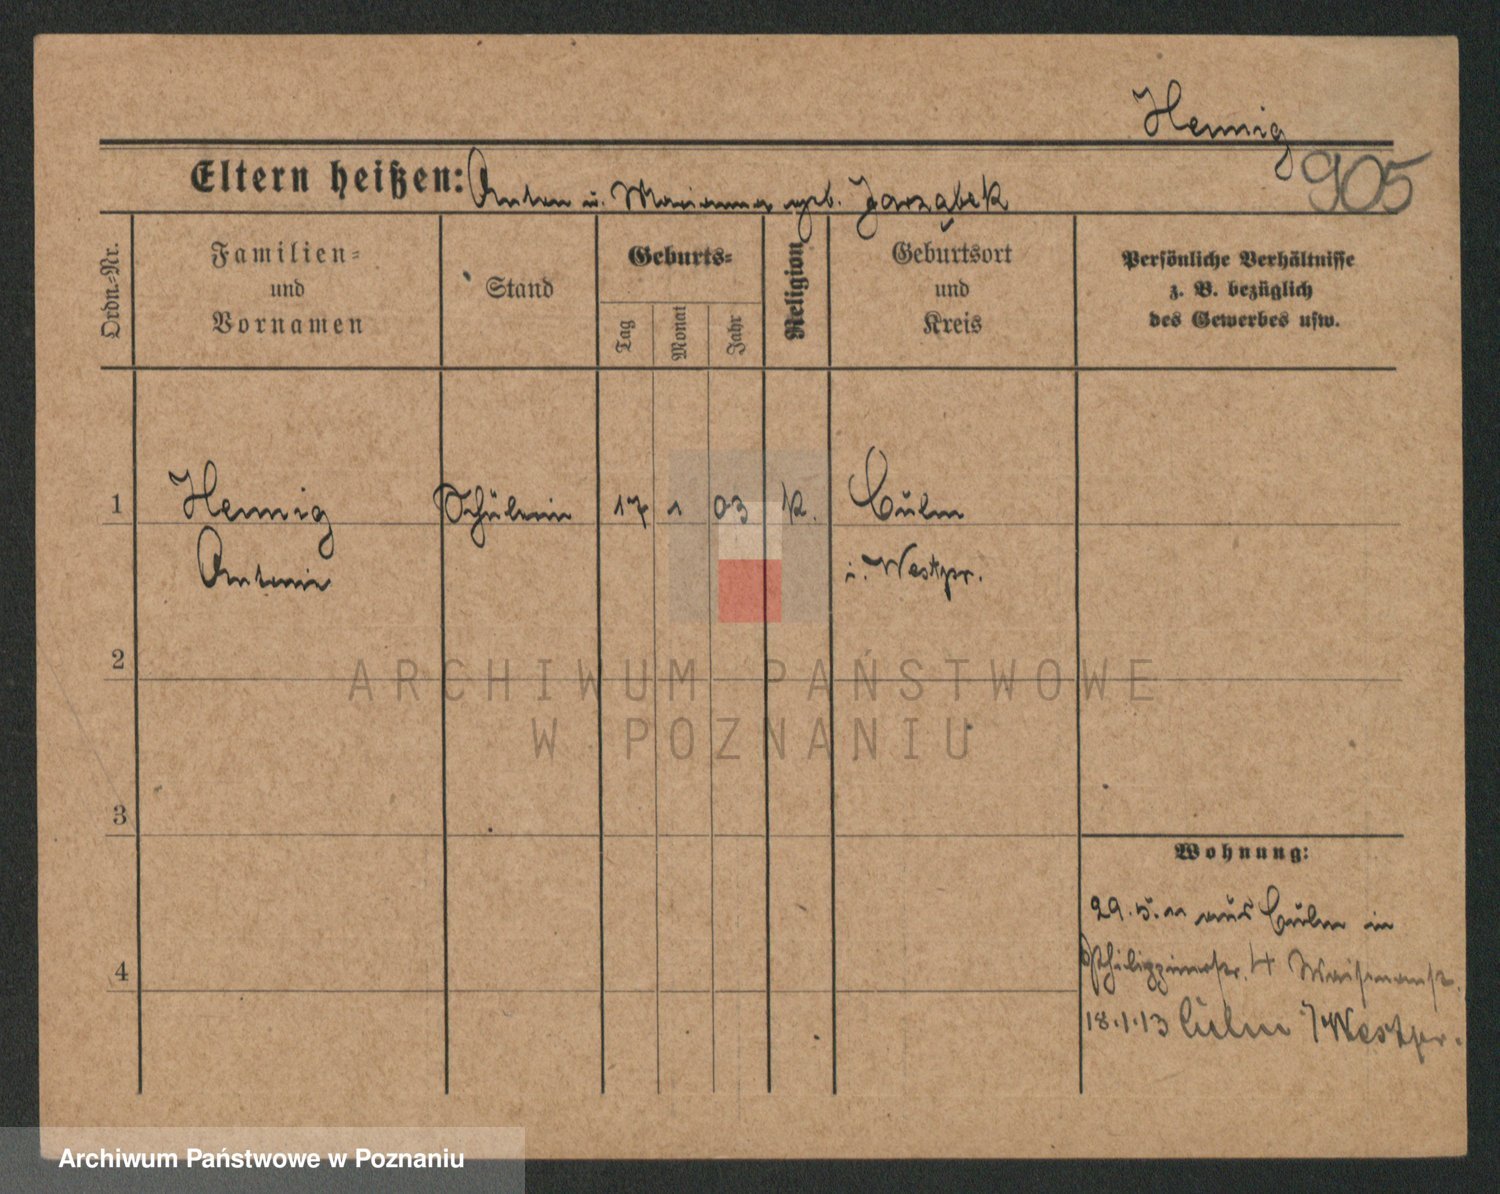 Hennig
905
Eltern heißen: Anton u. Marianna geb. Jarząbek
Ordn.-Nr.
Familien-
und
Vornamen
Stand
Geburts-
Tag
Monat
Jahr
Religion
Geburtsort
und
Kreis
Persönliche Verhältnisse
z. B. bezüglich
des Gewerbes usw.
1
Hennig Schülerin 17 1 03 K. Culm
Antonie i. Westpr.
2
ARCHIWUM PAŃSTWOWE
W POZNANIU
3
Wohnung:
29.5.11 aus Culm in
4
Philippinestr. 4 Waisenanst.
18.1.13 Culm /Westpr.
Archiwum Państwowe w Poznaniu